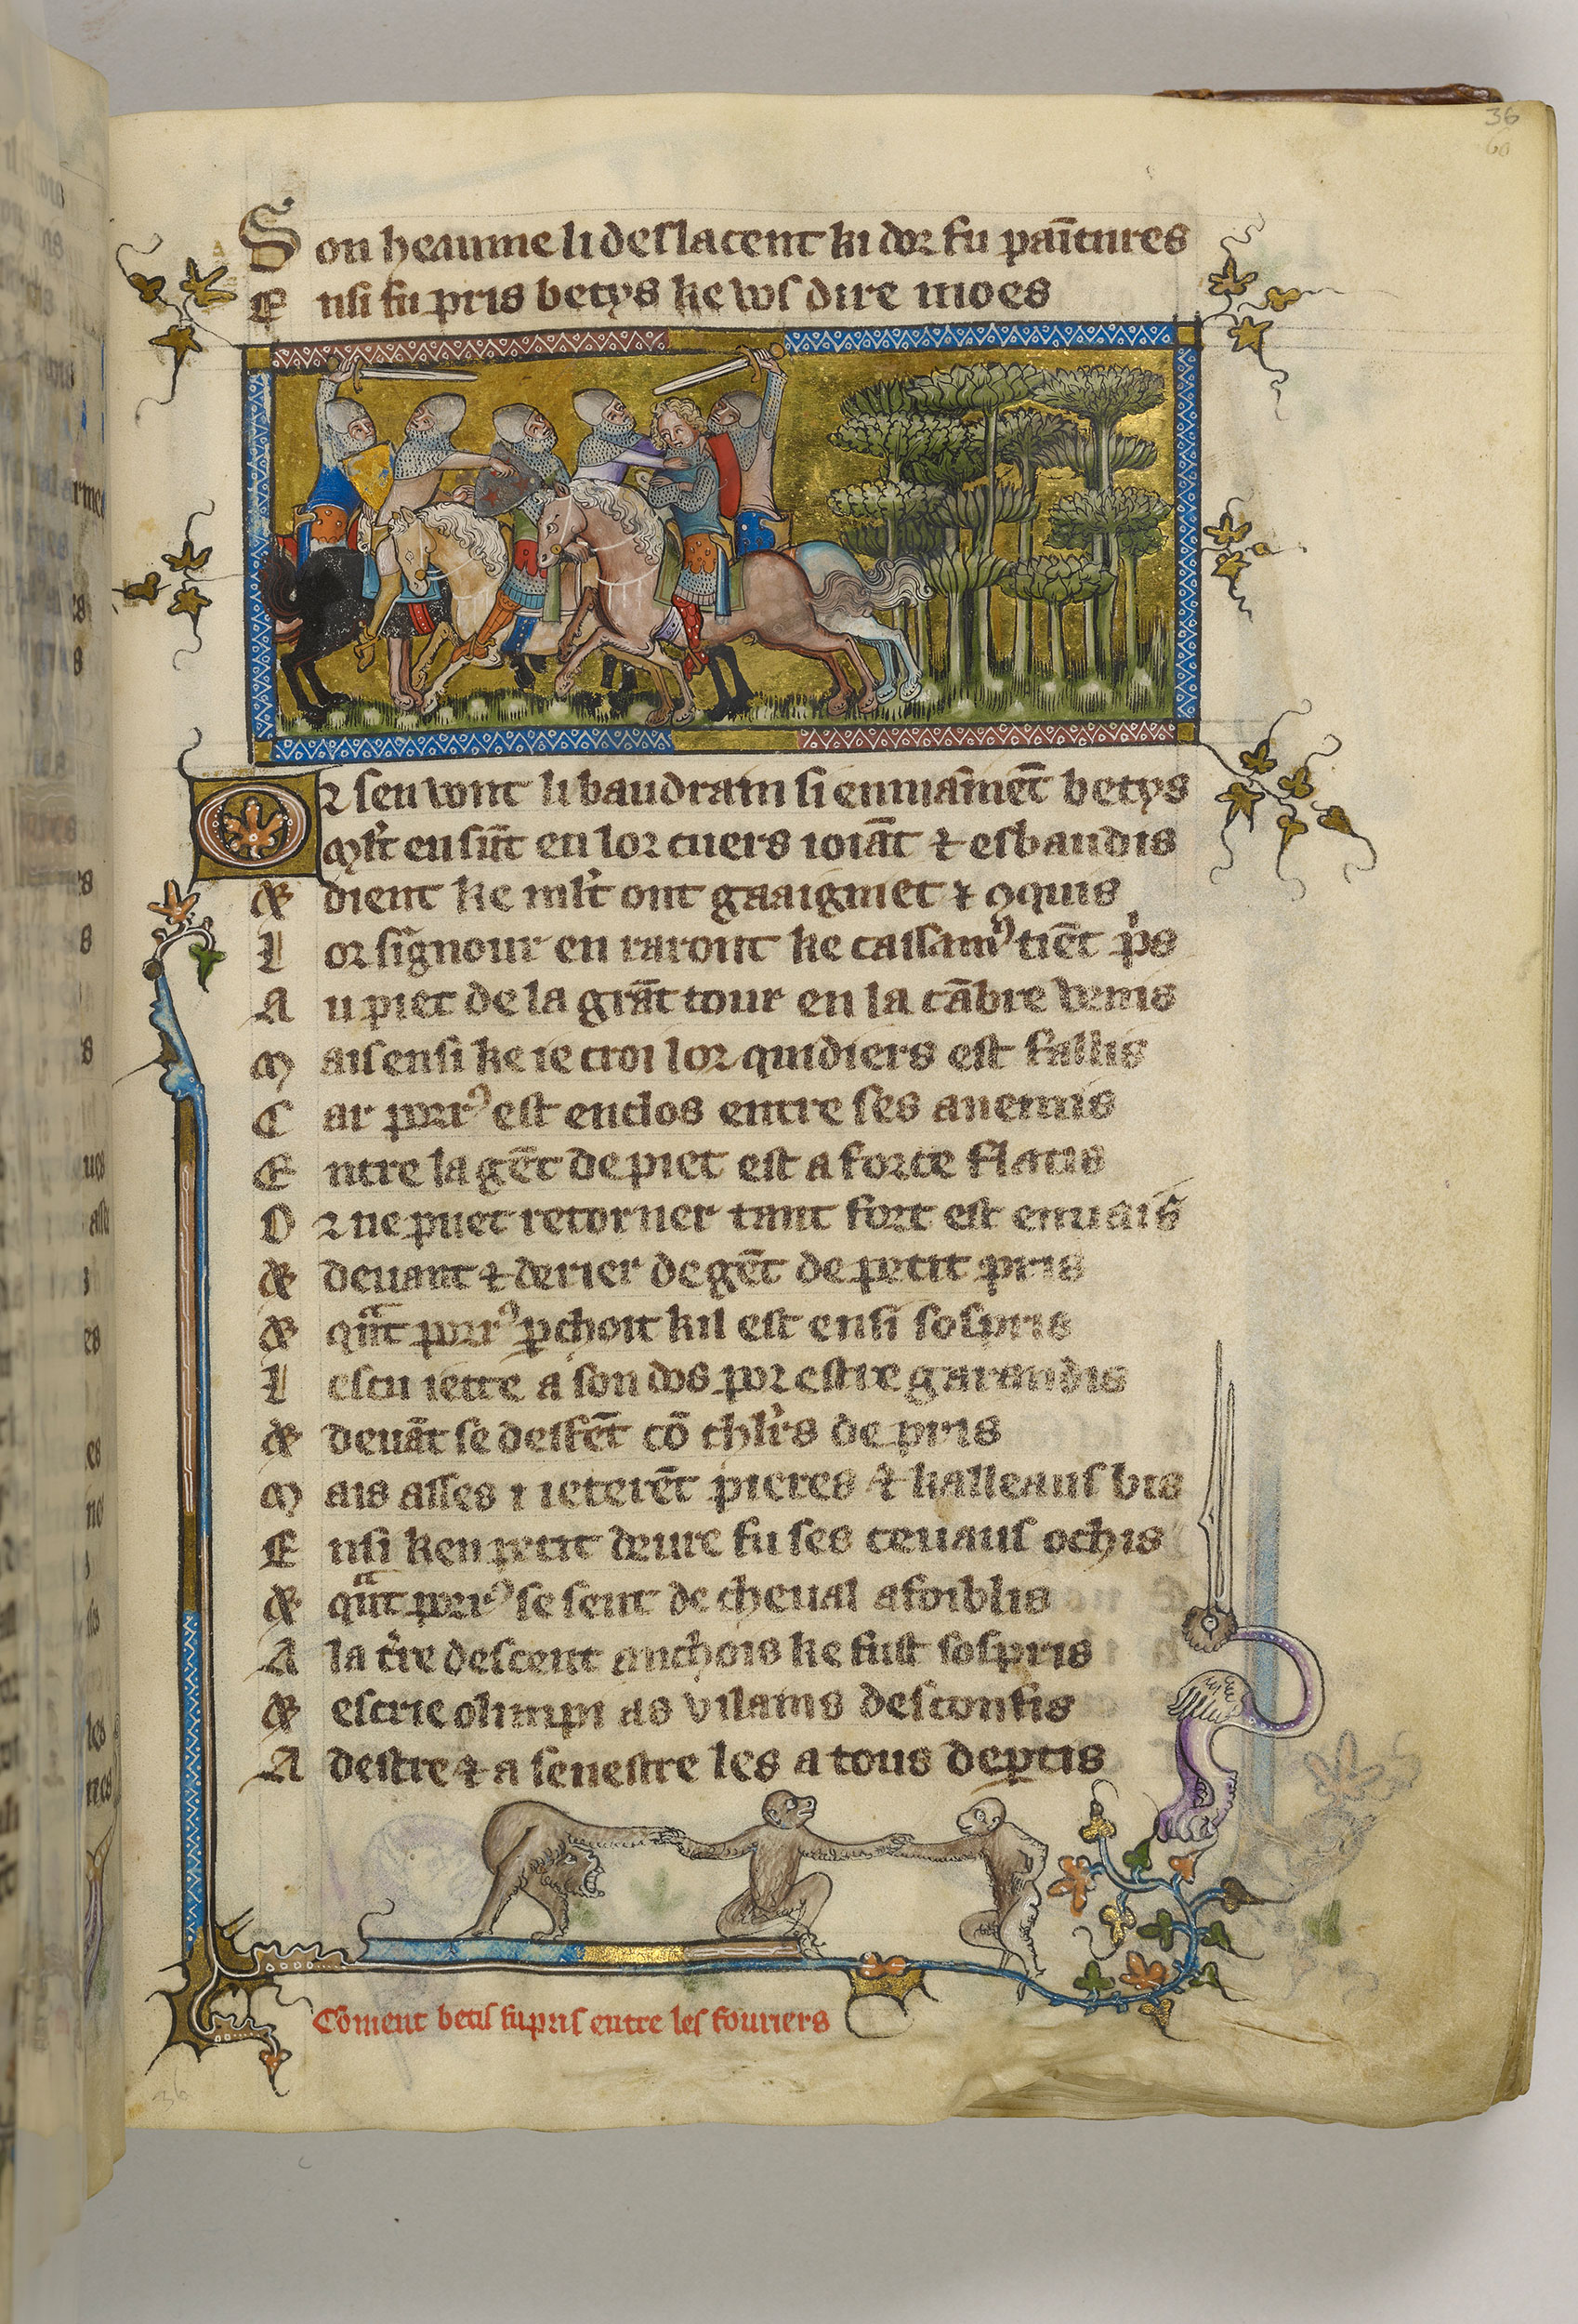 36
60
Son heaume li deslacent ki dor fu paītures
Ensi fu pris betys ke vos dire moes
Or sen vont li baudrain si enmaīnēt betys
Mlt en sūt en lor cuers ioiāt ⁊ esbaudis
& dient ke mlt ont gaaigniet ⁊ ꝯquis
Lor signour en raront ke caissamꝰ tiēt pris
Au piet de la grāt tour en la cābre venis
Mais ensi ke ie croi lor quidiers est fallis
Car porrꝰ est enclos entre ses anemis
Entre la gēt de piet est a force flatis
Or ne puet retorner tant fort est enuais
& deuant ⁊ derier de gēt de petit pris
& qāt porrꝰ ꝑchoit kil est ensi sospris
Lescu iette a son dos por estre garandis
& deuāt se deffēt cō chlrs de pris
Mais asses i ieterēt pieres ⁊ kalleaus bis
Ensi ken petit deure fu ses ceuaus ochis
& qāt porrꝰ se sent de cheual afoiblis
A la tre descent anchois ke fust sospris
& escrie olimpi as vilains desconfis
A destre ⁊ a senestre les a tous deꝑtis
Cōment betis fu pris entre les fouriers
36